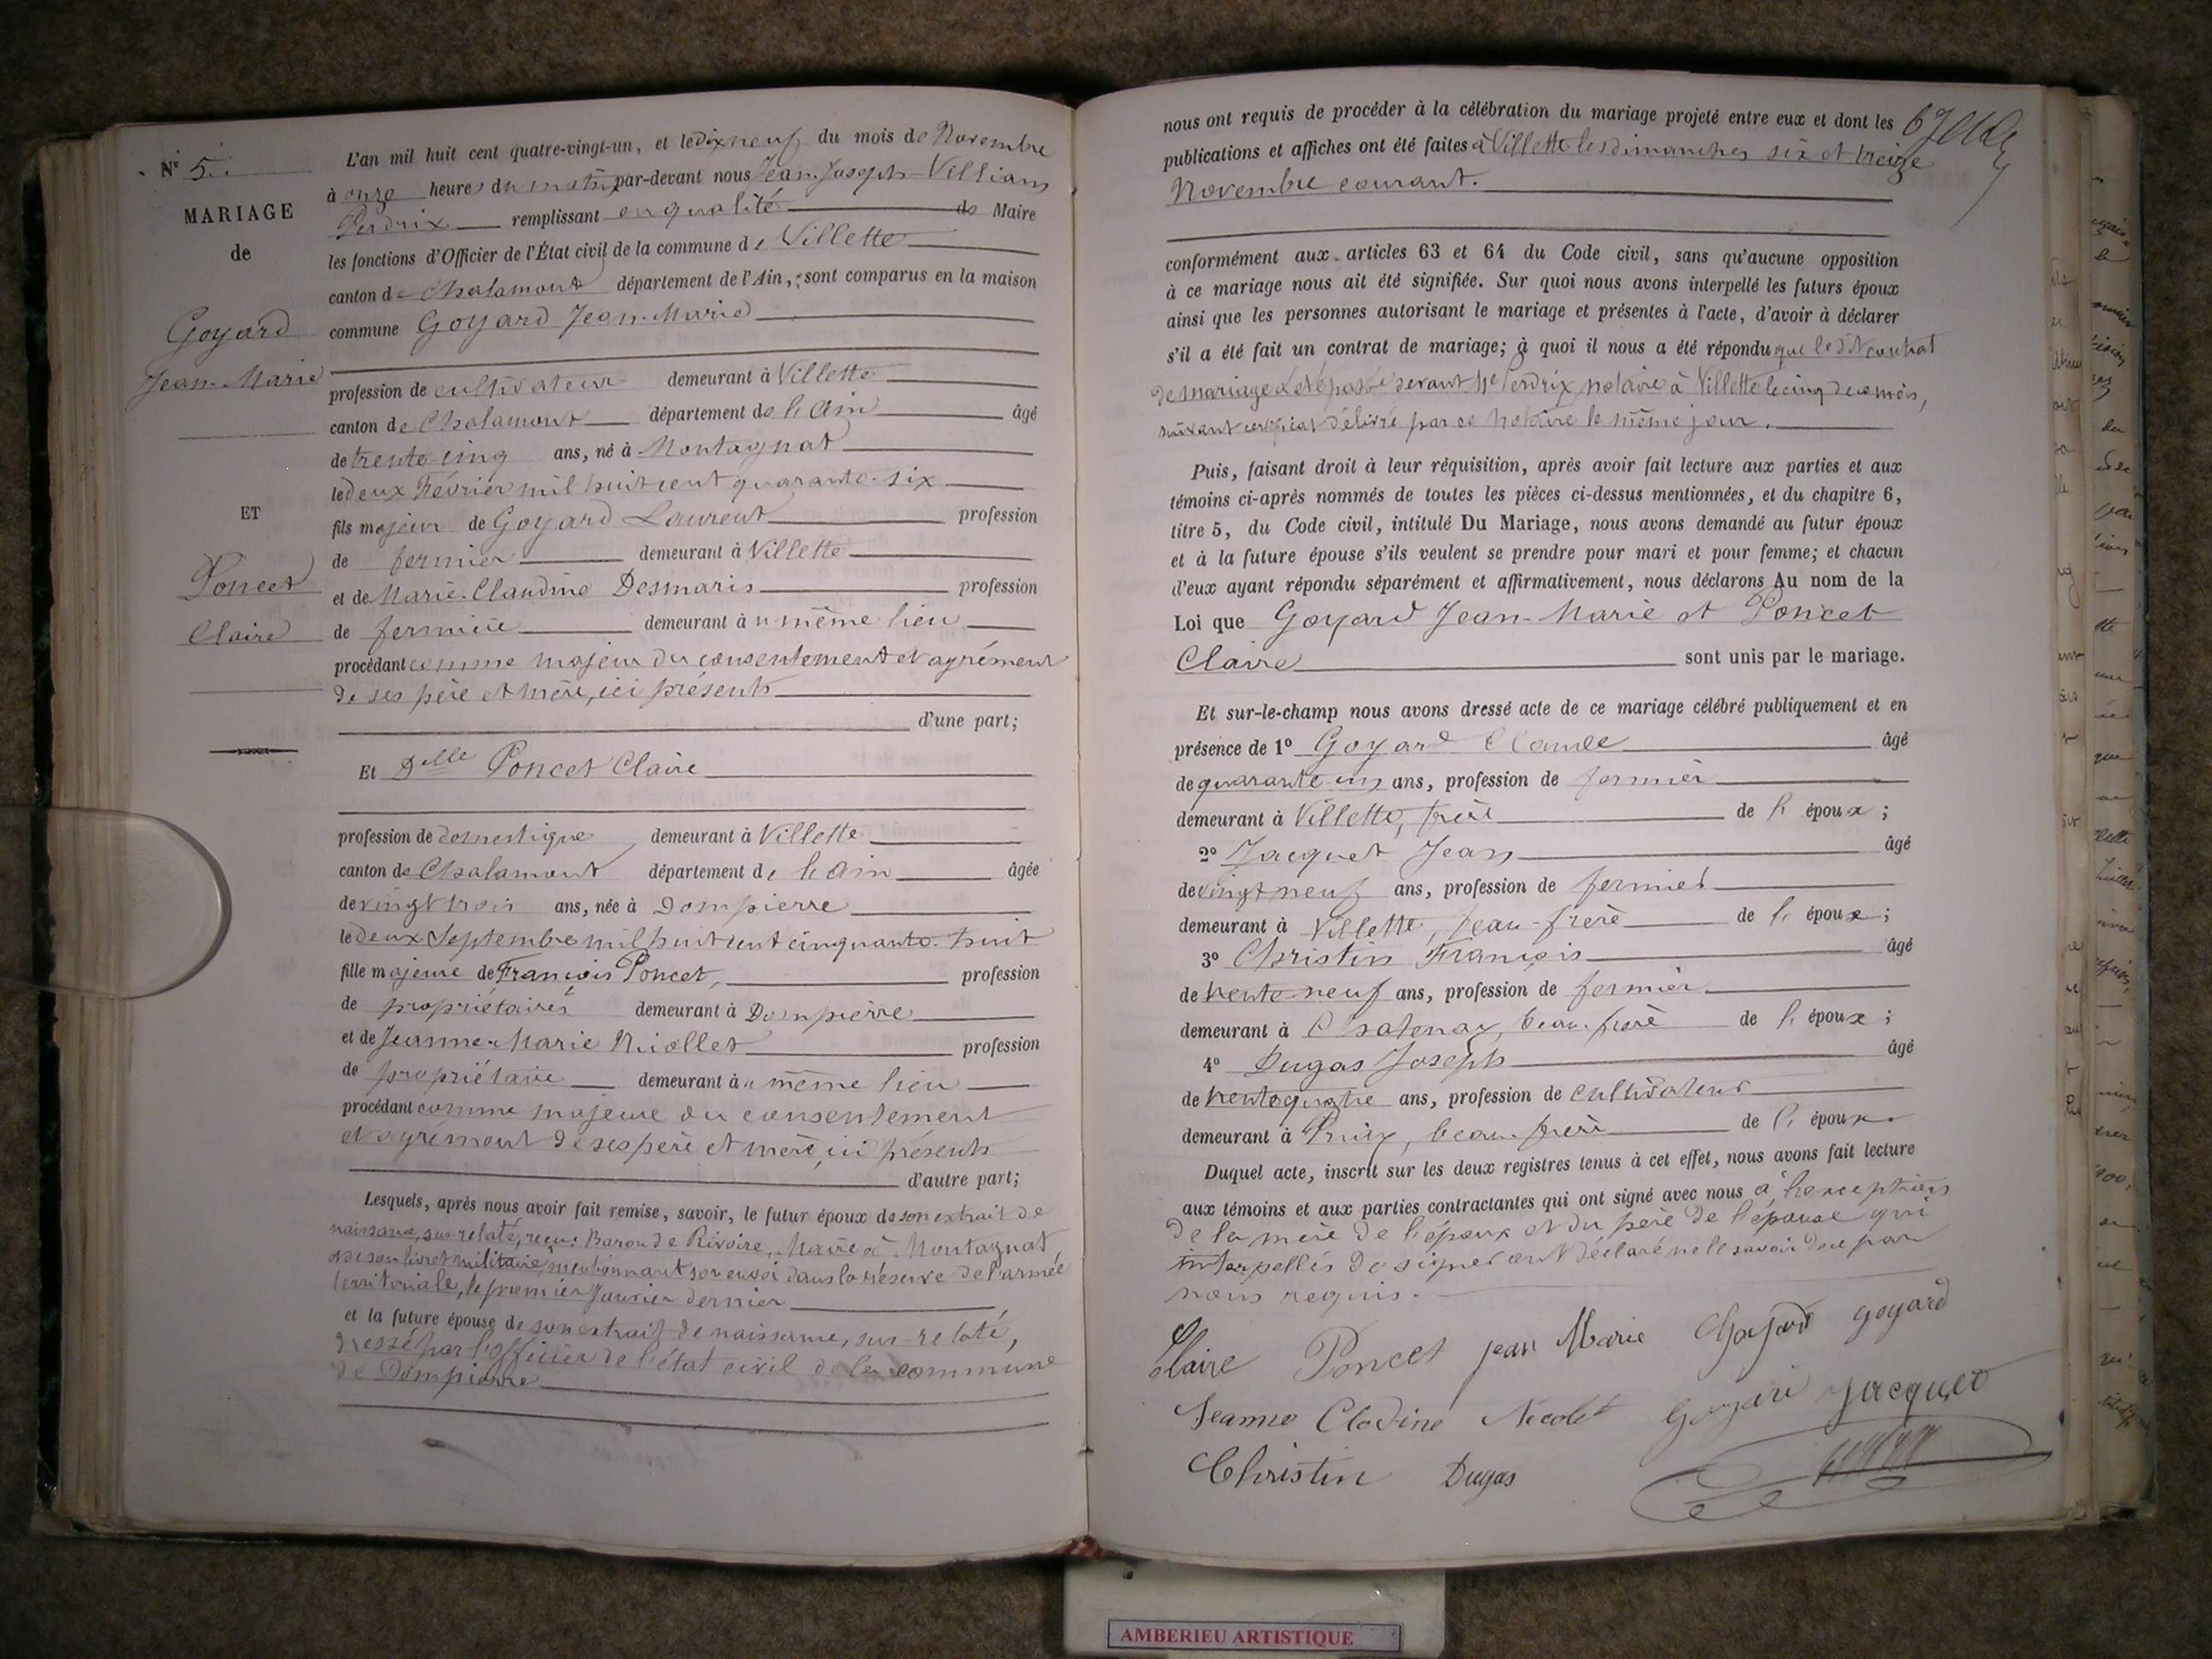 N° 5
MARIAGE
de
Goyard
Jean-Marie
ET
Poncet
Claire
L'an mil huit cent quatre-vingt-un, et le dix neuf du mois de Novembre
à onze heures du matin par-devant nous Jean-Joseph-Villiam
Perdrix remplissant en qualité de Maire
les fonctions d'Officier de l'État civil de la commune de Villette
canton de Chalamont département de l'Ain, sont comparus en la maison
commune Goyard Jean-Marie
profession de cultivateur demeurant à Villette
canton de Chalamont département de l'Ain âgé
de trente-cinq ans, né à Montagnat
le deux Février mil huit cent quarante-six
fils majeur de Goyard Laurent profession
de fermier demeurant à Villette
et de Marie-Claudine Desmaris profession
de fermière demeurant au même lieu
procédant comme majeur du consentement et agrément
de ses père et mère, ici présents
d'une part;
Et Delle Poncet Claire
profession de domestique demeurant à Villette
canton de Chalamont département de l'Ain âgée
de vingt trois ans, née à Dompierre
le deux Septembre mil huit cent cinquante-huit
fille majeure de François Poncet, profession
de propriétaires demeurant à Dompierre
et de Jeanne-Marie profession
de propriétaire demeurant au même lieu
procédant comme majeure du consentement
et agrément de ses père et mère, ici présents
d'autre part;
Lesquels, après nous avoir fait remise, savoir, le futur époux de son extrait de
naissance, sus-relaté, reçu: Baron de Rivoire, Maire à Montagnat
et de son livret militaire, mentionnant son envoi dans la réserve de l'armée
territoriale, le premier Janvier dernier
et la future épouse de son extrait de naissance, sus-relaté,
dressé par l'officier de l'état civil de la commune
de Dompierre
nous ont requis de procéder à la célébration du mariage projeté entre eux et dont les
publications et affiches ont été faites à Villette les dimanches six et treize
Novembre courant.
conformément aux articles 63 et 64 du Code civil, sans qu'aucune opposition
à ce mariage nous ait été signifiée. Sur quoi nous avons interpellé les futurs époux
ainsi que les personnes autorisant le mariage et présentes à l'acte, d'avoir à déclarer
s'il a été fait un contrat de mariage; à quoi il nous a été répondu que le dit contrat
de mariage a été passé devant Me Perdrix notaire à Villette le cinq de ce mois,
suivant certificat délivré par ce notaire le même jour.
Puis, faisant droit à leur réquisition, après avoir fait lecture aux parties et aux
témoins ci-après nommés de toutes les pièces ci-dessus mentionnées, et du chapitre 6,
titre 5, du Code civil, intitulé Du Mariage, nous avons demandé au futur époux
et à la future épouse s'ils veulent se prendre pour mari et pour femme; et chacun
d'eux ayant répondu séparément et affirmativement, nous déclarons Au nom de la
Loi que Goyard Jean-Marie et Poncet
Claire sont unis par le mariage.
Et sur-le-champ nous avons dressé acte de ce mariage célébré publiquement et en
présence de 1° Goyard Claude âgé
de quarante un ans, profession de fermier
demeurant à Villette, frère de l'époux;
2° Jacquet Jean âgé
de vingt neuf ans, profession de fermier
demeurant à Villette, beau-frère de l'époux;
3° Christin François âgé
de trente neuf ans, profession de fermier
demeurant à Chatenay, beau-frère de l'époux;
4° Dugas Joseph âgé
de trente quatre ans, profession de cultivateur
demeurant à Priay, beau-frère de l'époux.
Duquel acte, inscrit sur les deux registres tenus à cet effet, nous avons fait lecture
aux témoins et aux parties contractantes qui ont signé avec nous à l'exception
de la mère de l'époux et du père de l'épouse qui
interpellés de signer ont déclaré ne le savoir de ce par
nous requis.
Claire Poncet jean Marie Goyard goyard
Jeanne Clodine Nicolet Goyard Jacquet
Christin Dugas
AMBERIEU ARTISTIQUE